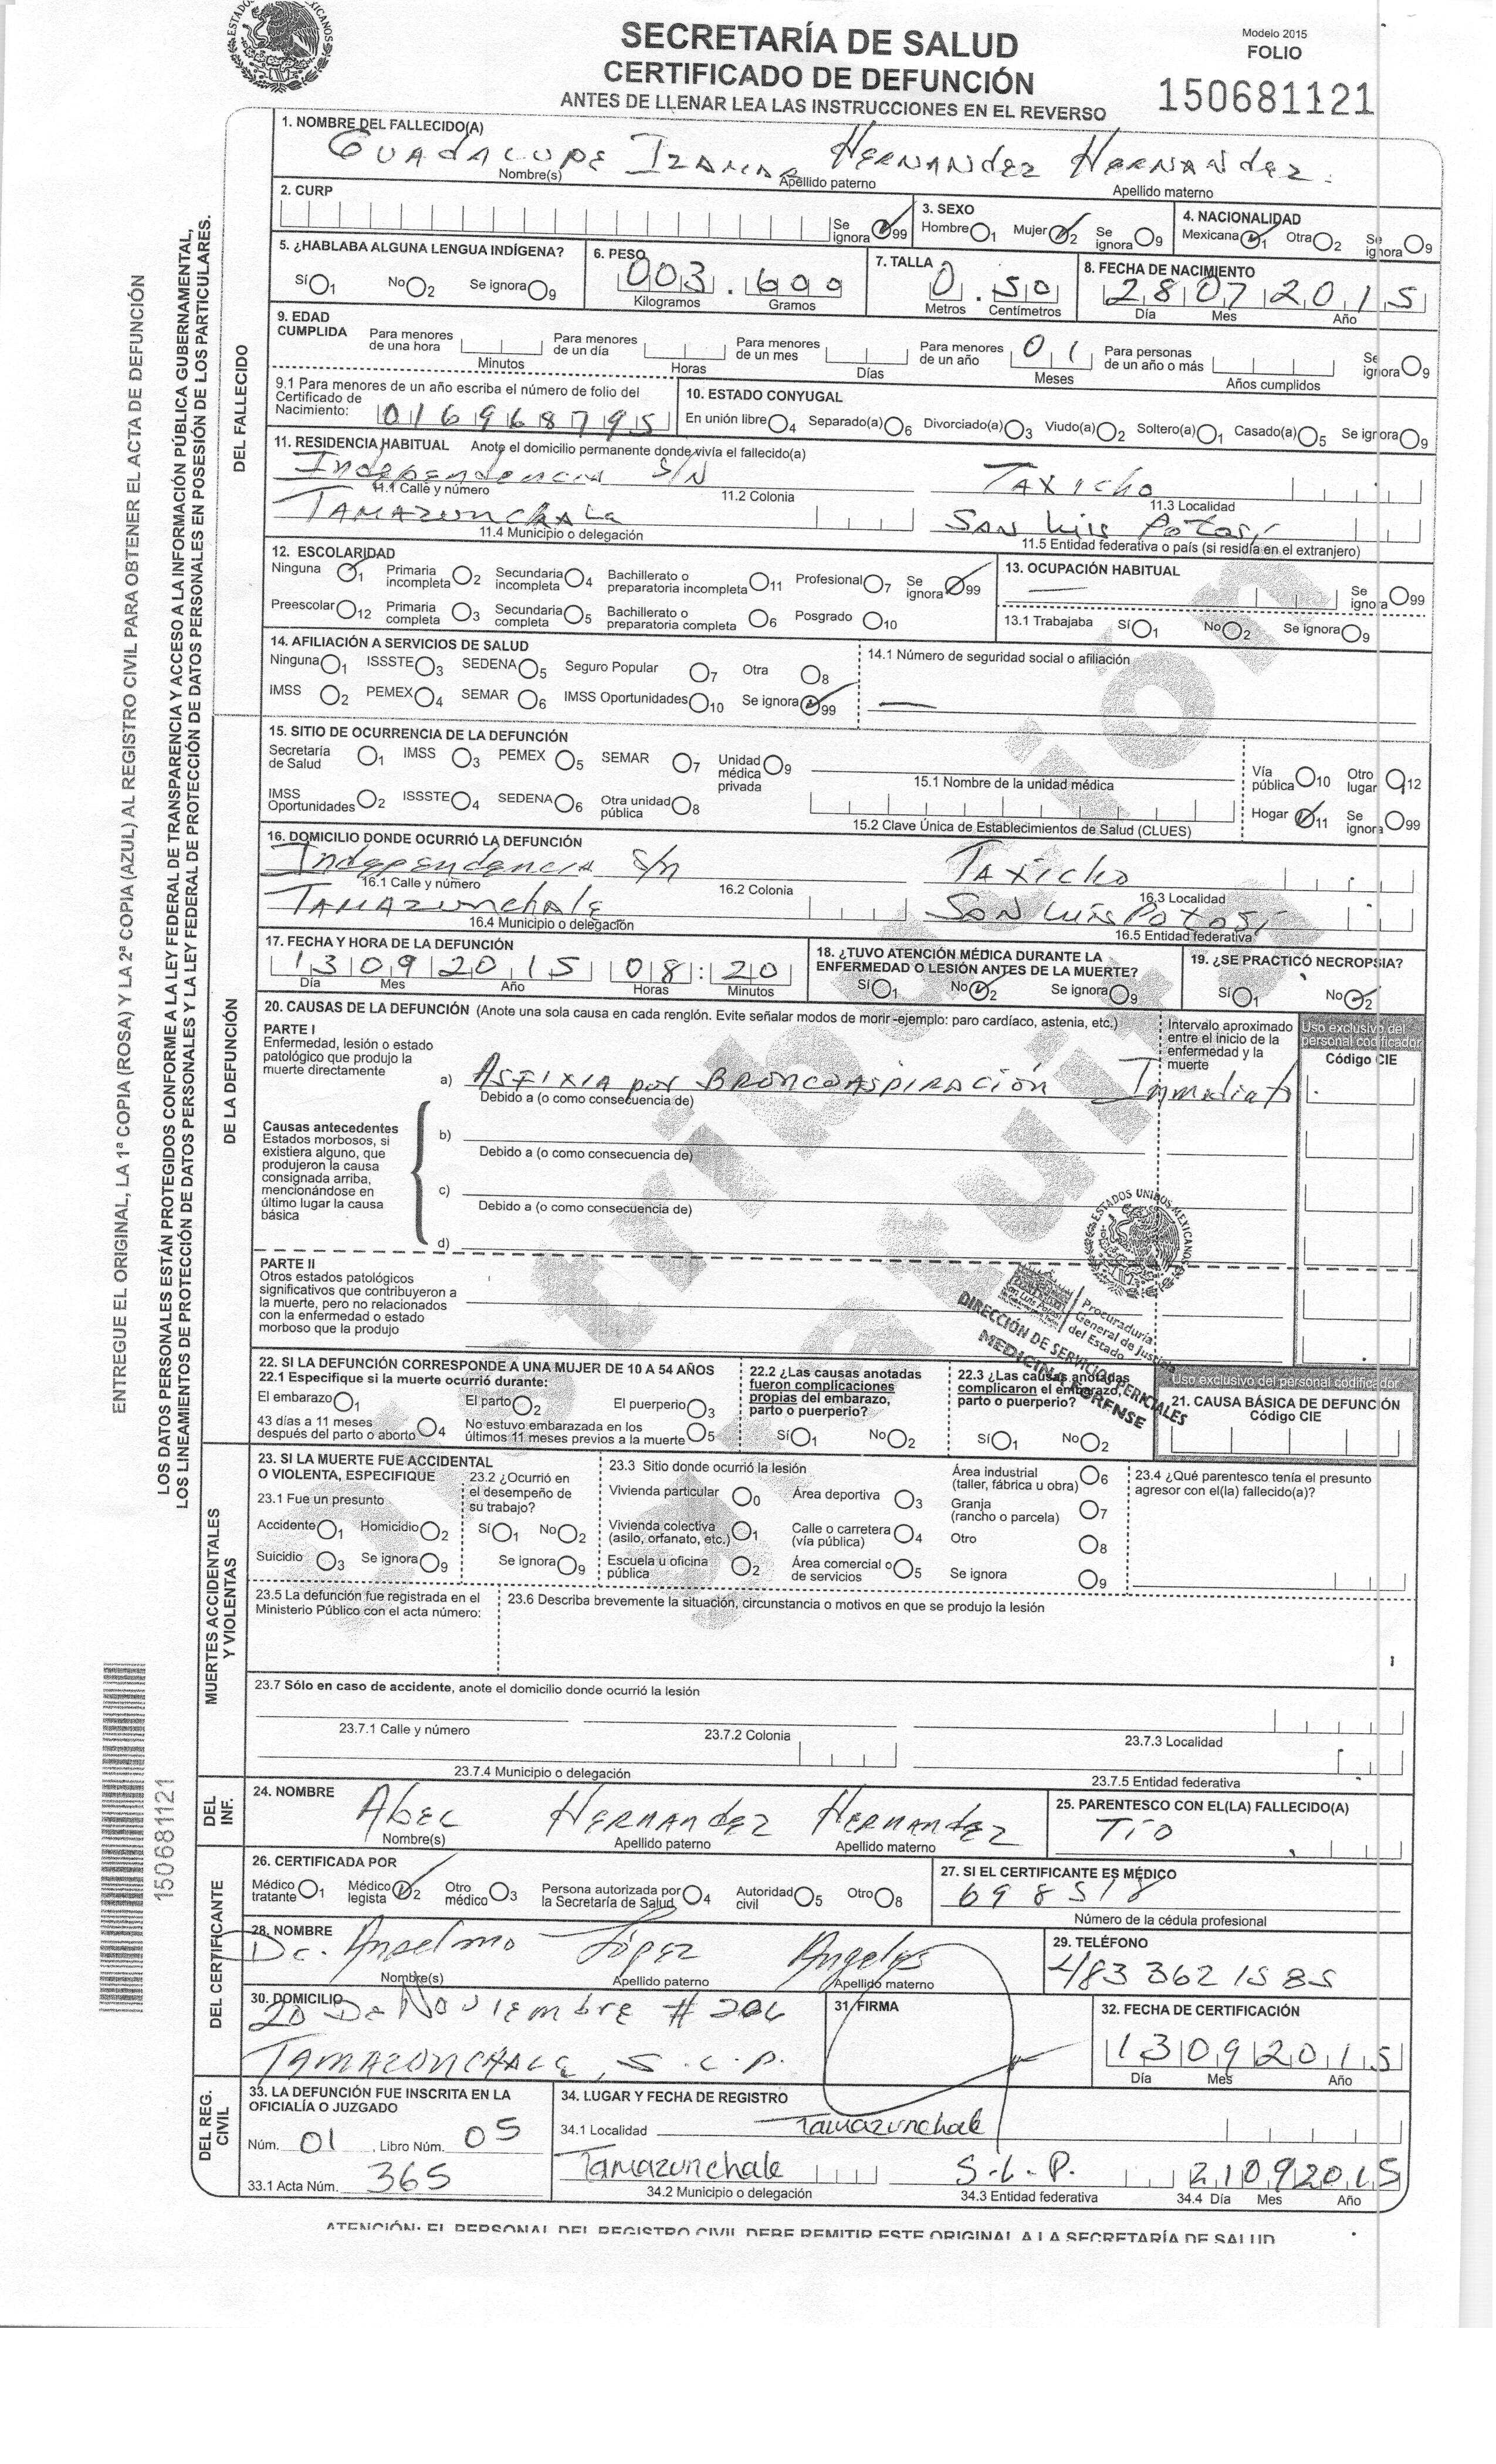 SECRETARÍA DE SALUD
CERTIFICADO DE DEFUNCIÓN
ANTES DE LLENAR LEA LAS INSTRUCCIONES EN EL REVERSO
Modelo 2015
FOLIO
150681121
1. NOMBRE DEL FALLECIDO(A)
GUADALUPE HERNANDEZ HERNANDEZ
Nombre(s) Apellido paterno Apellido materno
2. CURP
Se ignora 99
3. SEXO
Hombre 1 Mujer 2 Se ignora 9
4. NACIONALIDAD
Mexicana 1 Otra 2 Se ignora 9
5. ¿HABLABA ALGUNA LENGUA INDÍGENA?
Sí 1 No 2 Se ignora 9
6. PESO
003.600
Kilogramos Gramos
7. TALLA
0.50
Metros Centímetros
8. FECHA DE NACIMIENTO
28 07 2015
Día Mes Año
9. EDAD CUMPLIDA
Para menores de una hora Minutos
Para menores de un día Horas
Para menores de un mes Días
Para menores de un año 01 Meses
Para personas de un año o más Años cumplidos
Se ignora 9
9.1 Para menores de un año escriba el número de folio del Certificado de Nacimiento: 016968795
10. ESTADO CONYUGAL
En unión libre 4 Separado(a) 6 Divorciado(a) 3 Viudo(a) 2 Soltero(a) 1 Casado(a) 5 Se ignora 9
11. RESIDENCIA HABITUAL Anote el domicilio permanente donde vivía el fallecido(a)
Independencia S/N Taxicho
11.1 Calle y número 11.2 Colonia 11.3 Localidad
TAMAZUNCHALE San Luis Potosí
11.4 Municipio o delegación 11.5 Entidad federativa o país (si residía en el extranjero)
12. ESCOLARIDAD
Ninguna 1 Primaria incompleta 2 Secundaria incompleta 4 Bachillerato o preparatoria incompleta 11 Profesional 7 Se ignora 99
Preescolar 12 Primaria completa 3 Secundaria completa 5 Bachillerato o preparatoria completa 6 Posgrado 10
13. OCUPACIÓN HABITUAL
Se ignora 99
13.1 Trabajaba Sí 1 No 2 Se ignora 9
14. AFILIACIÓN A SERVICIOS DE SALUD
Ninguna 1 ISSSTE 3 SEDENA 5 Seguro Popular 7 Otra 8
IMSS 2 PEMEX 4 SEMAR 6 IMSS Oportunidades 10 Se ignora 99
14.1 Número de seguridad social o afiliación
15. SITIO DE OCURRENCIA DE LA DEFUNCIÓN
Secretaría de Salud 1 IMSS 3 PEMEX 5 SEMAR 7 Unidad médica privada 9
15.1 Nombre de la unidad médica
Vía pública 10 Otro lugar 12
IMSS Oportunidades 2 ISSSTE 4 SEDENA 6 Otra unidad pública 8
15.2 Clave Única de Establecimientos de Salud (CLUES)
Hogar 11 Se ignora 99
16. DOMICILIO DONDE OCURRIÓ LA DEFUNCIÓN
Independencia S/n Taxicho
16.1 Calle y número 16.2 Colonia 16.3 Localidad
TAMAZunchale San Luis Potosí
16.4 Municipio o delegación 16.5 Entidad federativa
17. FECHA Y HORA DE LA DEFUNCIÓN
13 09 2015 08:20
Día Mes Año Horas Minutos
18. ¿TUVO ATENCIÓN MÉDICA DURANTE LA ENFERMEDAD O LESIÓN ANTES DE LA MUERTE?
Sí 1 No 2 Se ignora 9
19. ¿SE PRACTICÓ NECROPSIA?
Sí 1 No 2
20. CAUSAS DE LA DEFUNCIÓN (Anote una sola causa en cada renglón. Evite señalar modos de morir -ejemplo: paro cardíaco, astenia, etc.)
Intervalo aproximado entre el inicio de la enfermedad y la muerte
Uso exclusivo del personal codificador
Código CIE
PARTE I
Enfermedad, lesión o estado patológico que produjo la muerte directamente
a) Asfixia por BRONCOASPIRACIÓN
Debido a (o como consecuencia de)
Causas antecedentes
Estados morbosos, si existiera alguno, que produjeron la causa consignada arriba, mencionándose en último lugar la causa básica
b)
Debido a (o como consecuencia de)
c)
Debido a (o como consecuencia de)
d)
PARTE II
Otros estados patológicos significativos que contribuyeron a la muerte, pero no relacionados con la enfermedad o estado morboso que la produjo
ESTADOS UNIDOS MEXICANOS
Procuraduría General de Justicia del Estado
DIRECCIÓN DE SERVICIOS PERICIALES
MEDICINA FORENSE
22. SI LA DEFUNCIÓN CORRESPONDE A UNA MUJER DE 10 A 54 AÑOS
22.1 Especifique si la muerte ocurrió durante:
El embarazo 1 El parto 2 El puerperio 3
43 días a 11 meses después del parto o aborto 4 No estuvo embarazada en los últimos 11 meses previos a la muerte 5
22.2 ¿Las causas anotadas fueron complicaciones propias del embarazo, parto o puerperio?
Sí 1 No 2
22.3 ¿Las causas anotadas complicaron el embarazo, parto o puerperio?
Sí 1 No 2
Uso exclusivo del personal codificador
21. CAUSA BÁSICA DE DEFUNCIÓN
Código CIE
23. SI LA MUERTE FUE ACCIDENTAL O VIOLENTA, ESPECIFIQUE
23.1 Fue un presunto
Accidente 1 Homicidio 2
Suicidio 3 Se ignora 9
23.2 ¿Ocurrió en el desempeño de su trabajo?
Sí 1 No 2
Se ignora 9
23.3 Sitio donde ocurrió la lesión
Vivienda particular 0 Área deportiva 3
Vivienda colectiva (asilo, orfanato, etc.) 1 Calle o carretera (vía pública) 4
Escuela u oficina pública 2 Área comercial o de servicios 5
Área industrial (taller, fábrica u obra) 6
Granja (rancho o parcela) 7
Otro 8
Se ignora 9
23.4 ¿Qué parentesco tenía el presunto agresor con el(la) fallecido(a)?
23.5 La defunción fue registrada en el Ministerio Público con el acta número:
23.6 Describa brevemente la situación, circunstancia o motivos en que se produjo la lesión
23.7 Sólo en caso de accidente, anote el domicilio donde ocurrió la lesión
23.7.1 Calle y número 23.7.2 Colonia 23.7.3 Localidad
23.7.4 Municipio o delegación 23.7.5 Entidad federativa
24. NOMBRE
Abel HERNANDEZ HERNANDEZ
Nombre(s) Apellido paterno Apellido materno
25. PARENTESCO CON EL(LA) FALLECIDO(A)
TIO
26. CERTIFICADA POR
Médico tratante 1 Médico legista 2 Otro médico 3 Persona autorizada por la Secretaría de Salud 4 Autoridad civil 5 Otro 8
27. SI EL CERTIFICANTE ES MÉDICO
698518
Número de la cédula profesional
28. NOMBRE
Dr. Anselmo López Angeles
Nombre(s) Apellido paterno Apellido materno
29. TELÉFONO
483 362 1585
30. DOMICILIO
20 De Noviembre #
TAMAZUNCHALE, S.L.P.
31 FIRMA
32. FECHA DE CERTIFICACIÓN
13 09 2015
Día Mes Año
33. LA DEFUNCIÓN FUE INSCRITA EN LA OFICIALÍA O JUZGADO
Núm. 01, Libro Núm. 05
33.1 Acta Núm. 365
34. LUGAR Y FECHA DE REGISTRO
34.1 Localidad Tamazunchale
Tamazunchale S.L.P. 21 09 2015
34.2 Municipio o delegación 34.3 Entidad federativa 34.4 Día Mes Año
ATENCIÓN: EL PERSONAL DEL REGISTRO CIVIL DEBE REMITIR ESTE ORIGINAL A LA SECRETARÍA DE SALUD
DEL FALLECIDO
DE LA DEFUNCIÓN
MUERTES ACCIDENTALES Y VIOLENTAS
DEL INF.
DEL CERTIFICANTE
DEL REG. CIVIL
ENTREGUE EL ORIGINAL, LA 1ª COPIA (ROSA) Y LA 2ª COPIA (AZUL) AL REGISTRO CIVIL PARA OBTENER EL ACTA DE DEFUNCIÓN
LOS DATOS PERSONALES ESTÁN PROTEGIDOS CONFORME A LA LEY FEDERAL DE TRANSPARENCIA Y ACCESO A LA INFORMACIÓN PÚBLICA GUBERNAMENTAL,
LOS LINEAMIENTOS DE PROTECCIÓN DE DATOS PERSONALES Y LA LEY FEDERAL DE PROTECCIÓN DE DATOS PERSONALES EN POSESIÓN DE LOS PARTICULARES.
150681121